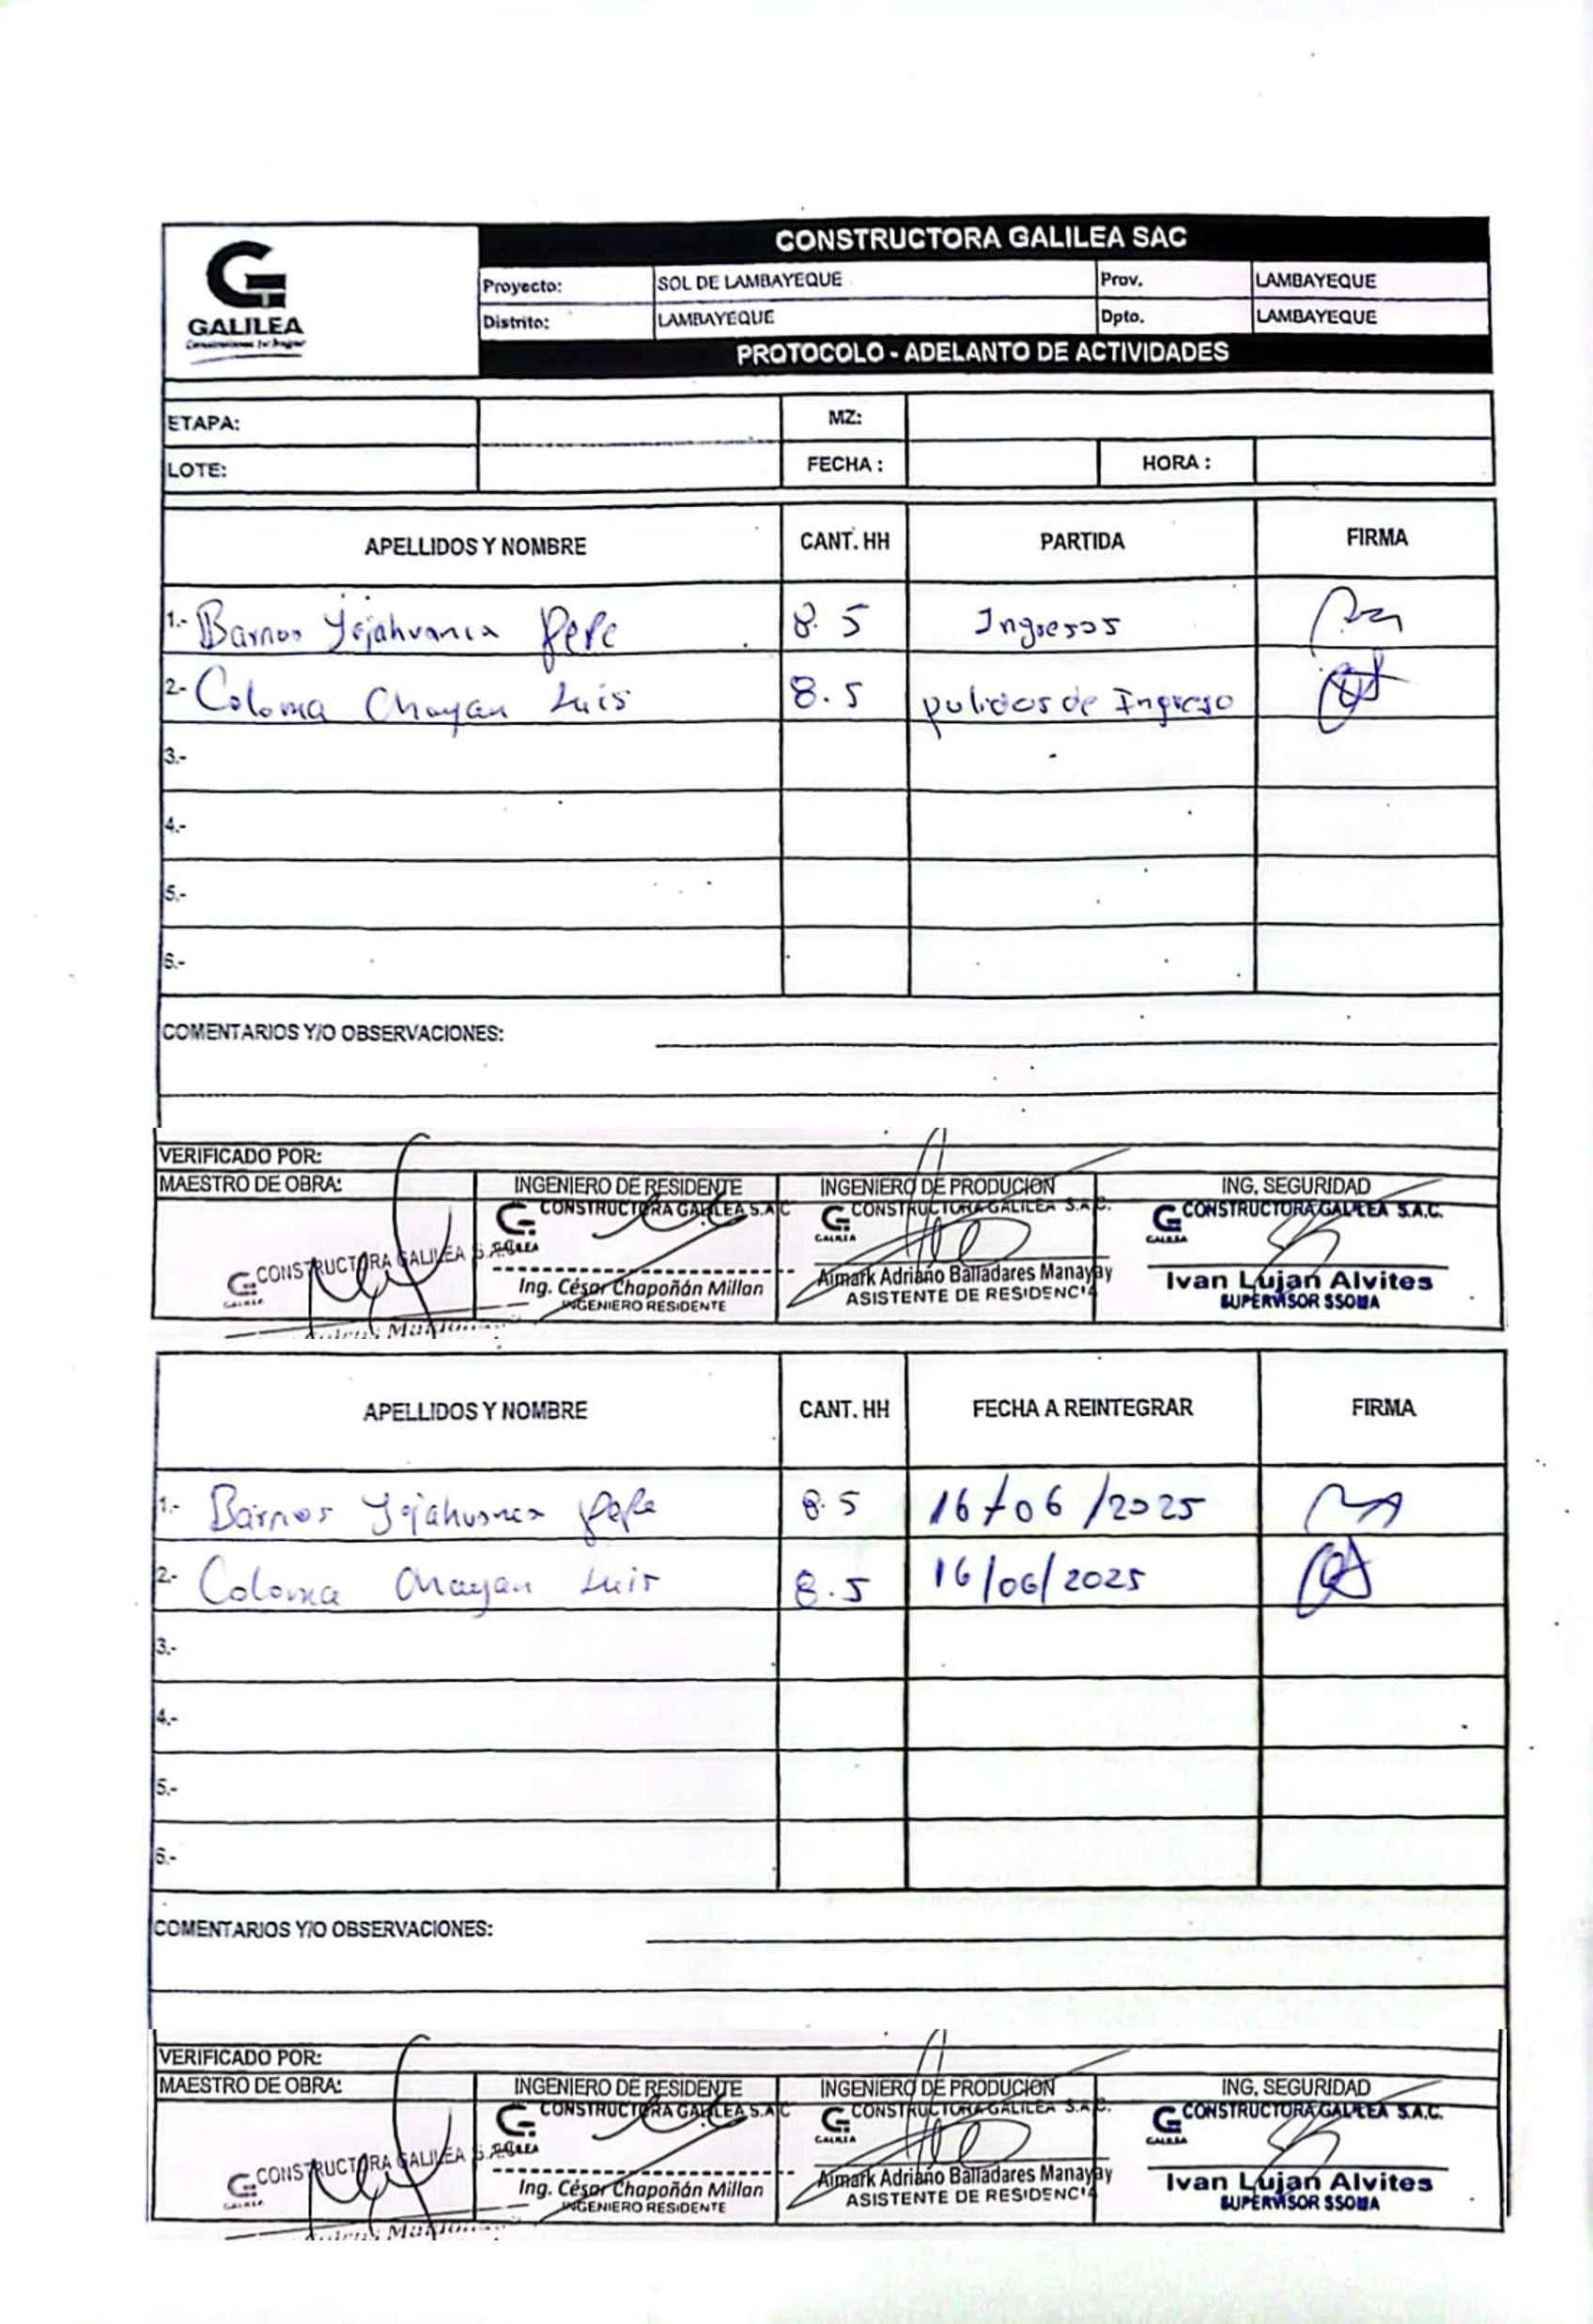 CONSTRUCTORA GALILEA SAC
GALILEA
Proyecto: SOL DE LAMBAYEQUE Prov. LAMBAYEQUE
Distrito: LAMBAYEQUE Dpto. LAMBAYEQUE
PROTOCOLO - ADELANTO DE ACTIVIDADES
ETAPA: MZ:
LOTE: FECHA : HORA :
APELLIDOS Y NOMBRE CANT. HH PARTIDA FIRMA
1.- Barnos Pepe 8.5 Ingresos
2.- Coloma Chayan Luis 8.5 pulidos de Ingreso
3.-
4.-
5.-
6.-
COMENTARIOS Y/O OBSERVACIONES:
VERIFICADO POR:
MAESTRO DE OBRA: INGENIERO DE RESIDENTE INGENIERO DE PRODUCION ING. SEGURIDAD
CONSTRUCTORA GALILEA S.A.C CONSTRUCTORA GALILEA S.A.C. CONSTRUCTORA GALILEA S.A.C.
CONSTRUCTORA GALILEA S.A.C. GALILEA GALILEA GALILEA
GALILEA Ing. César Chapoñán Millan Aimark Adriano Balladares Manayay Ivan Lujan Alvites
INGENIERO RESIDENTE ASISTENTE DE RESIDENCIA SUPERVISOR SSOMA
APELLIDOS Y NOMBRE CANT. HH FECHA A REINTEGRAR FIRMA
1.- Barnos Pepe 8.5 16/06/2025
2.- Coloma Chayan Luis 8.5 16/06/2025
3.-
4.-
5.-
6.-
COMENTARIOS Y/O OBSERVACIONES:
VERIFICADO POR:
MAESTRO DE OBRA: INGENIERO DE RESIDENTE INGENIERO DE PRODUCION ING. SEGURIDAD
CONSTRUCTORA GALILEA S.A.C CONSTRUCTORA GALILEA S.A.C. CONSTRUCTORA GALILEA S.A.C.
CONSTRUCTORA GALILEA S.A.C. GALILEA GALILEA GALILEA
GALILEA Ing. César Chapoñán Millan Aimark Adriano Balladares Manayay Ivan Lujan Alvites
INGENIERO RESIDENTE ASISTENTE DE RESIDENCIA SUPERVISOR SSOMA